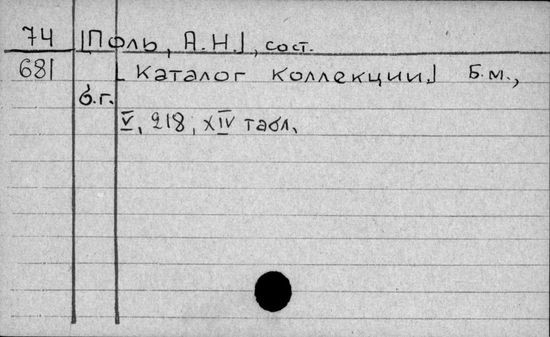 74 [Поль, А.Н.], сост.
681 [Каталог коллекции.] Б.м.,
б.г.
V, 218, XIV табл.